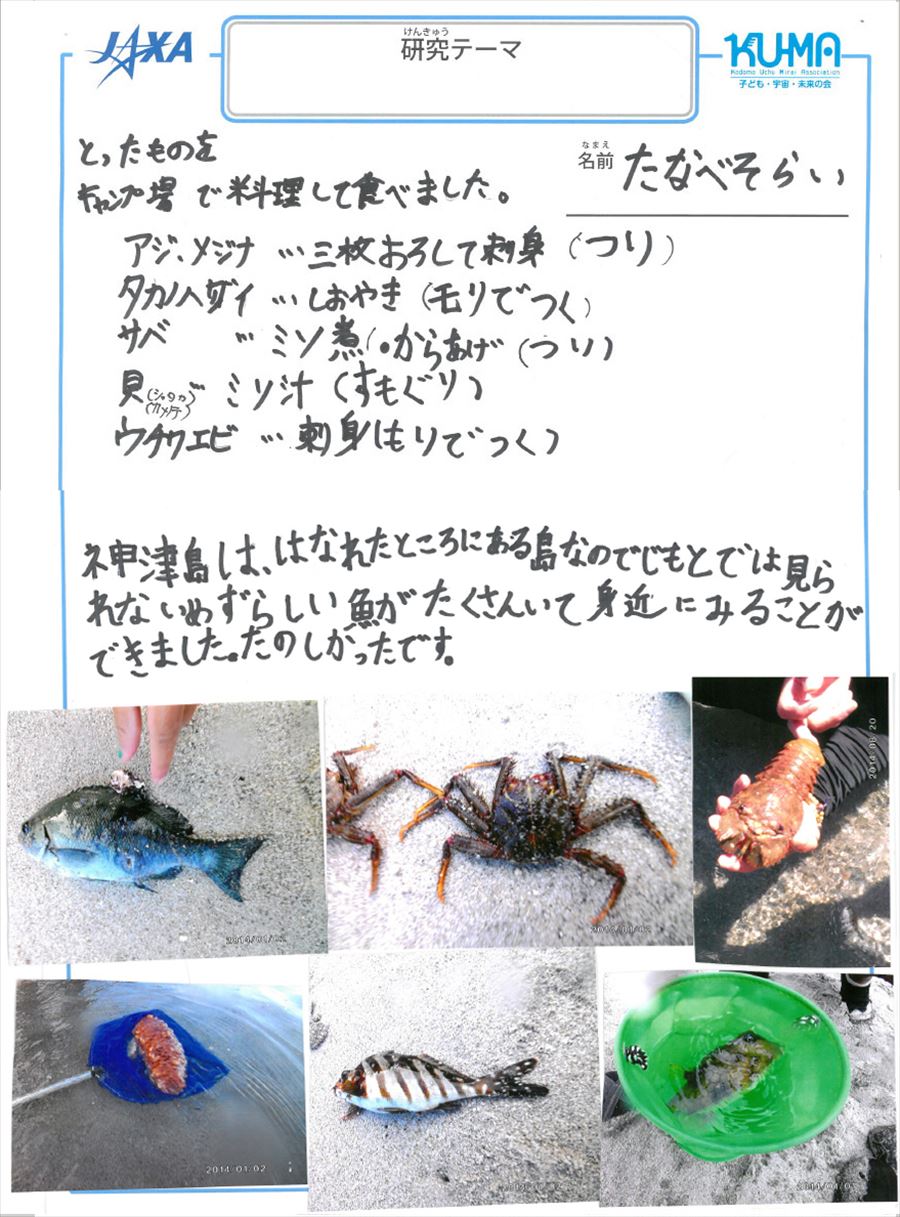 JAXA
けんきゅう
研究テーマ
KU-MA
Kodomo Uchu Mirai Association
子ども・宇宙・未来の会
なまえ
名前 たなべそらい
とったものを
キャンプ場で料理して食べました。
アジ、メジナ …三枚おろして刺身(つり)
タカノハダイ …しおやき(モリでつく)
サバ …ミソ煮・からあげ(つり)
貝(シッタカ)(カメノテ)…ミソ汁(すもぐり)
ウチワエビ …刺身(もりでつく)
神津島は、はなれたところにある島なのでじもとでは見ら
れないめずらしい魚がたくさんいて身近にみることが
できました。たのしかったです。
2014/01/02
2014 06 20
2014/01/02